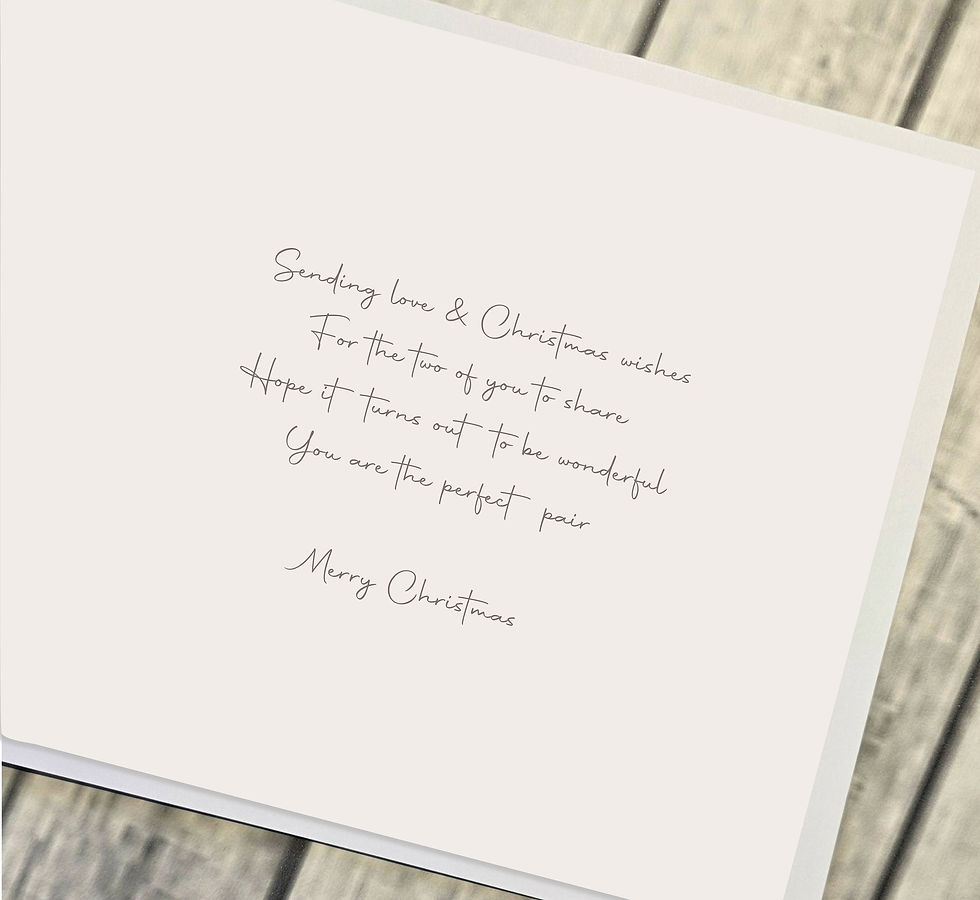 Sending love & Christmas wishes
For the two of you to share
Hope it turns out to be wonderful
You are the perfect pair
Merry Christmas